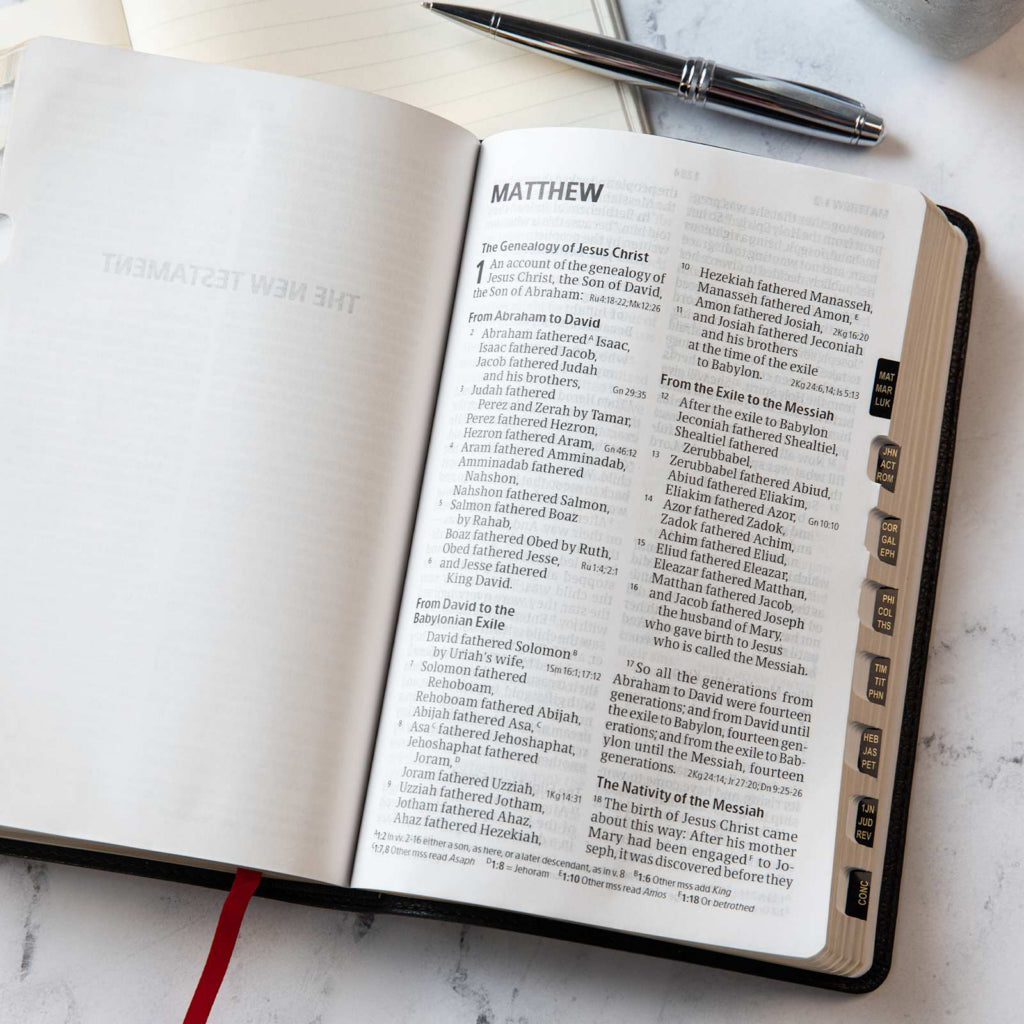 THE NEW TESTAMENT
MATTHEW
The Genealogy of Jesus Christ
1 An account of the genealogy of
Jesus Christ, the Son of David,
the Son of Abraham: Ru4:18-22; Mk12:26
From Abraham to David
2 Abraham fathered A Isaac,
Isaac fathered Jacob,
Jacob fathered Judah
and his brothers,
3 Judah fathered Gn 29:35
Perez and Zerah by Tamar,
Perez fathered Hezron,
Hezron fathered Aram,
4 Aram fathered Amminadab, Gn 46:12
Amminadab fathered
Nahshon,
Nahshon fathered Salmon,
5 Salmon fathered Boaz
by Rahab,
Boaz fathered Obed by Ruth,
Obed fathered Jesse,
6 and Jesse fathered Ru 1:4; 2:1
King David.
From David to the
Babylonian Exile
David fathered Solomon B
by Uriah's wife,
7 Solomon fathered 1Sm 16:1; 17:12
Rehoboam,
Rehoboam fathered Abijah,
Abijah fathered Asa, C
8 Asa C fathered Jehoshaphat,
Jehoshaphat fathered
Joram, D
Joram fathered Uzziah,
9 Uzziah fathered Jotham, 1Kg 14:31
Jotham fathered Ahaz,
Ahaz fathered Hezekiah,
10 Hezekiah fathered Manasseh,
Manasseh fathered Amon, E
Amon fathered Josiah,
11 and Josiah fathered Jeconiah 2Kg 16:20
and his brothers
at the time of the exile
to Babylon. 2Kg 24:6,14; Is 5:13
From the Exile to the Messiah
12 After the exile to Babylon
Jeconiah fathered Shealtiel,
Shealtiel fathered
Zerubbabel,
13 Zerubbabel fathered Abiud,
Abiud fathered Eliakim,
Eliakim fathered Azor,
14 Azor fathered Zadok, Gn 10:10
Zadok fathered Achim,
Achim fathered Eliud,
15 Eliud fathered Eleazar,
Eleazar fathered Matthan,
Matthan fathered Jacob,
16 and Jacob fathered Joseph
the husband of Mary,
who gave birth to Jesus
who is called the Messiah.
17 So all the generations from
Abraham to David were fourteen
generations; and from David until
the exile to Babylon, fourteen gen-
erations; and from the exile to Bab-
ylon until the Messiah, fourteen
generations. 2Kg 24:14; Jr 27:20; Dn 9:25-26
The Nativity of the Messiah
18 The birth of Jesus Christ came
about this way: After his mother
Mary had been engaged F to Jo-
seph, it was discovered before they
A1:2 In vv. 2-16 either a son, as here, or a later descendant, as in v. 8 B1:6 Other mss add King
C1:7,8 Other mss read Asaph D1:8 = Jehoram E1:10 Other mss read Amos F1:18 Or betrothed
MAT
MAR
LUK
JHN
ACT
ROM
COR
GAL
EPH
PHI
COL
THS
TIM
TIT
PHN
HEB
JAS
PET
1JN
JUD
REV
CONC